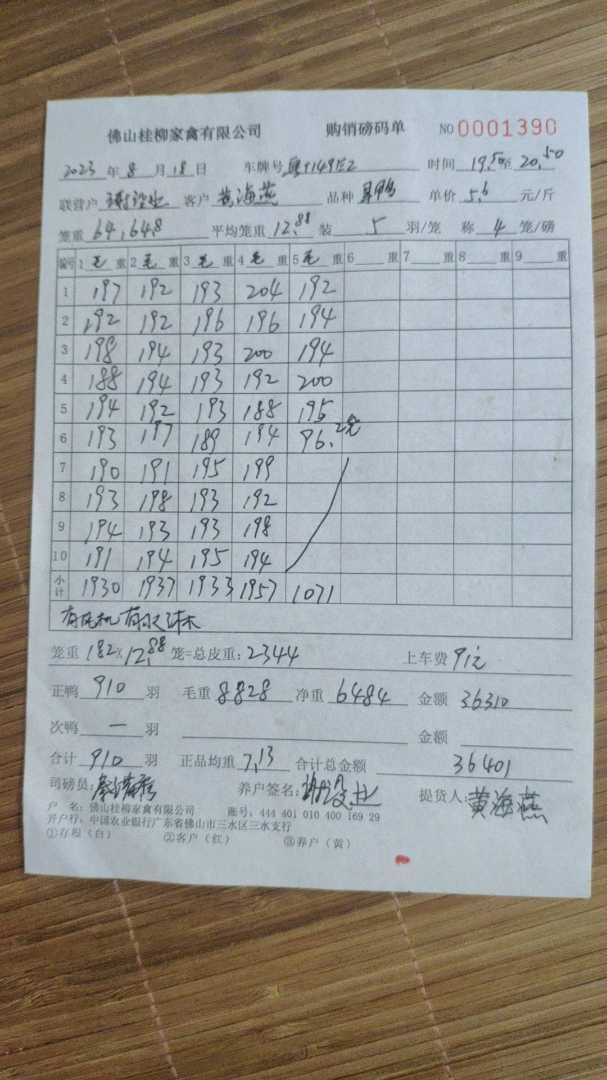 佛山桂柳家禽有限公司 购销磅码单 NO 0001390
2023 年 8 月 18 日 车牌号 时间 19.50至 20.50
联营户 客户 黄海燕 品种 单价 5.6 元/斤
笼重 64,64.8 平均笼重 12.88 装 5 羽/笼 称 4 笼/磅
编号 1 毛 重 2 毛 重 3 毛 重 4 毛 重 5 毛 重 6 重 7 重 8 重 9 重
1 197 192 193 204 192
2 192 192 196 196 194
3 198 194 193 200 194
4 188 194 193 192 200
5 194 192 193 188 195
6 193 197 189 194 96.2笼
7 190 191 195 199
8 193 198 193 192
9 194 193 193 198
10 191 194 195 194
小计 1930 1937 1933 1957 1071
有风机有
笼重 182×12.88 笼=总皮重: 2344 上车费 91元
正鸭 910 羽 毛重 8828 净重 6484 金额 36310
次鸭 一 羽 金额
合计 910 羽 正品均重 7.13 合计总金额 36401
司磅员: 养户签名: 提货人: 黄海燕
户 名: 佛山桂柳家禽有限公司 账号: 444 401 010 400 169 29
开户行: 中国农业银行广东省佛山市三水区三水支行
①存根（白） ②客户（红） ③养户（黄）